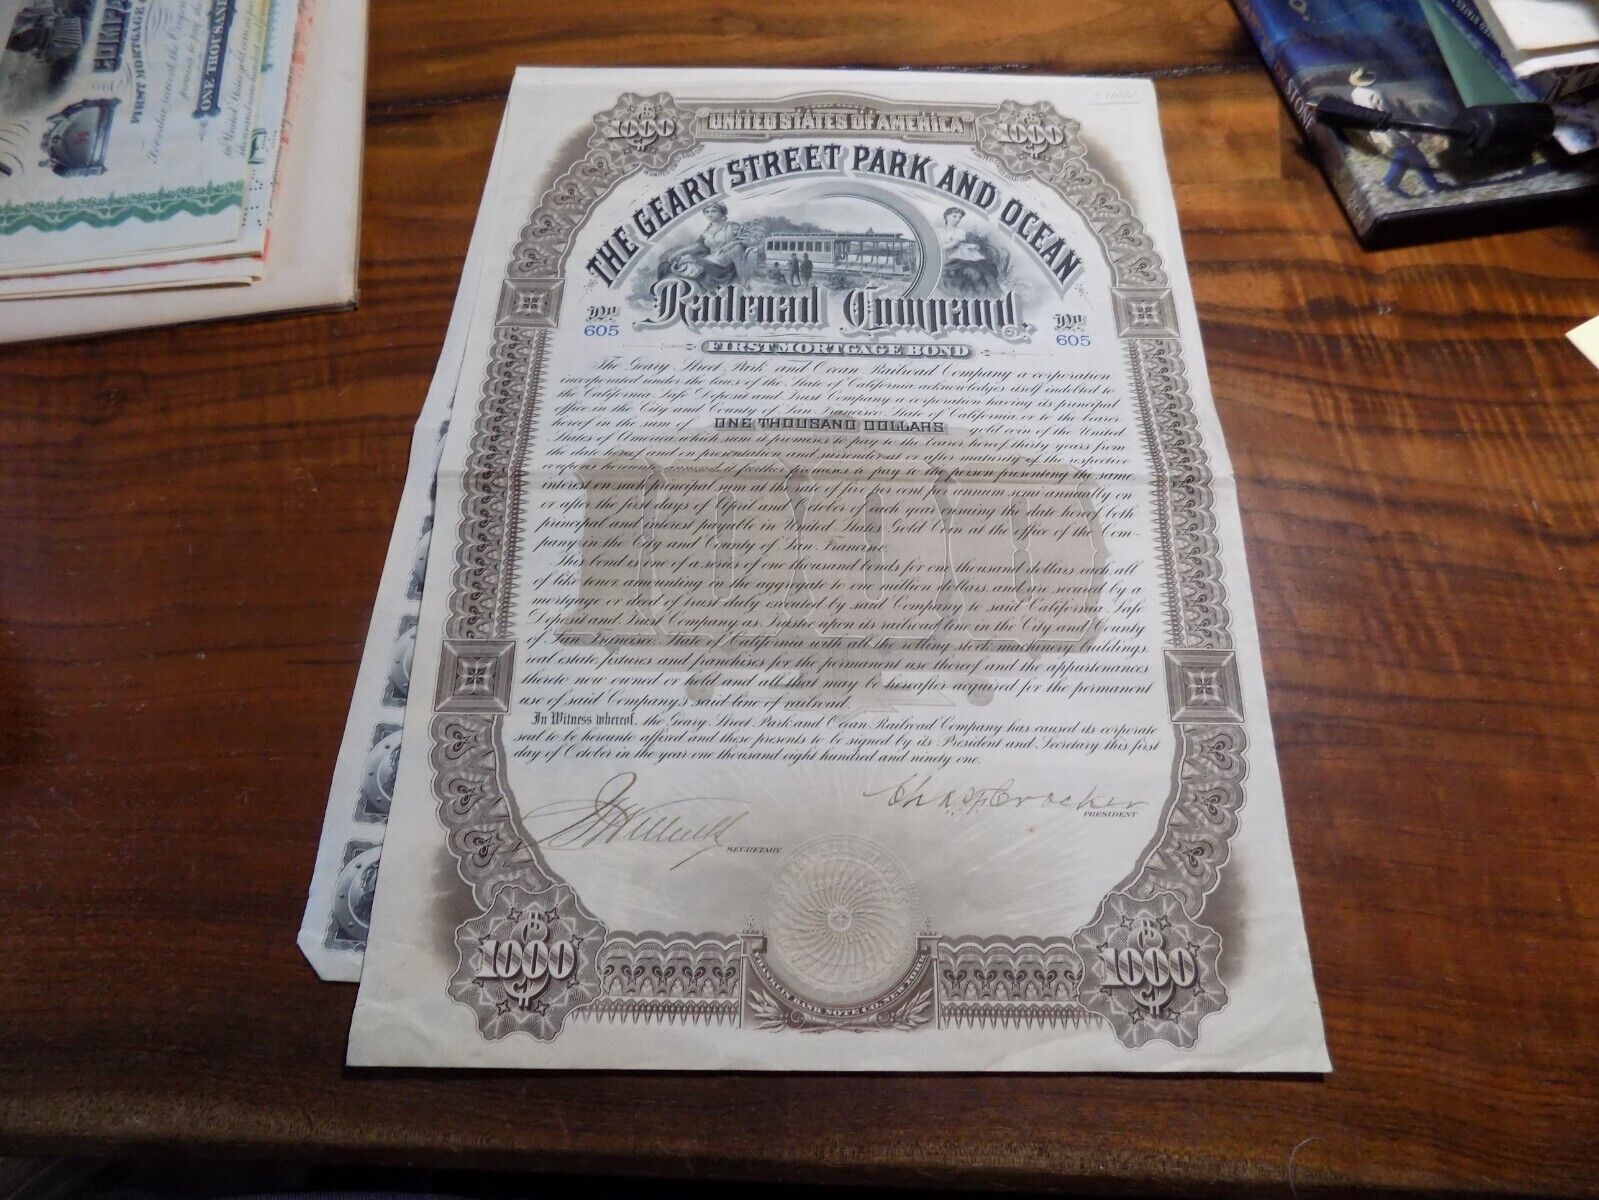 COMPA
FIRST MORTGAGE
ONE THOUSAND
STONE
UNITED STATES OF AMERICA
1000 1000
THE GEARY STREET PARK AND OCEAN
Railroad Company.
No No
605 605
FIRST MORTGAGE BOND
The Geary Street Park and Ocean Railroad Company a corporation
incorporated under the laws of the State of California acknowledges itself indebted to
the California Safe Deposit and Trust Company a corporation having its principal
office in the City and County of San Francisco State of California or to the bearer
hereof in the sum of ONE THOUSAND DOLLARS gold coin of the United
States of America which sum it promises to pay to the bearer hereof thirty years from
the date hereof and on presentation and surrender at or after maturity of the respective
coupons hereunto annexed it further promises to pay to the person presenting the same
interest on such principal sum at the rate of five per cent per annum semi-annually on
or after the first days of April and October of each year ensuing the date hereof both
principal and interest payable in United States Gold Coin at the office of the Com-
pany in the City and County of San Francisco.
This bond is one of a series of one thousand bonds for one thousand dollars each all
of like tenor amounting in the aggregate to one million dollars and are secured by a
mortgage or deed of trust duly executed by said Company to said California Safe
Deposit and Trust Company as Trustee upon its railroad line in the City and County
of San Francisco State of California with all the rolling stock machinery buildings
real estate fixtures and franchises for the permanent use thereof and the appurtenances
thereto now owned or held and all that may be hereafter acquired for the permanent
use of said Company's said line of railroad.
In Witness whereof, the Geary Street Park and Ocean Railroad Company has caused its corporate
seal to be hereunto affixed and these presents to be signed by its President and Secretary this first
day of October in the year one thousand eight hundred and ninety one.
Chas F Crocker
PRESIDENT
SECRETARY
1000 1000
FRANKLIN BANK NOTE CO. NEW YORK